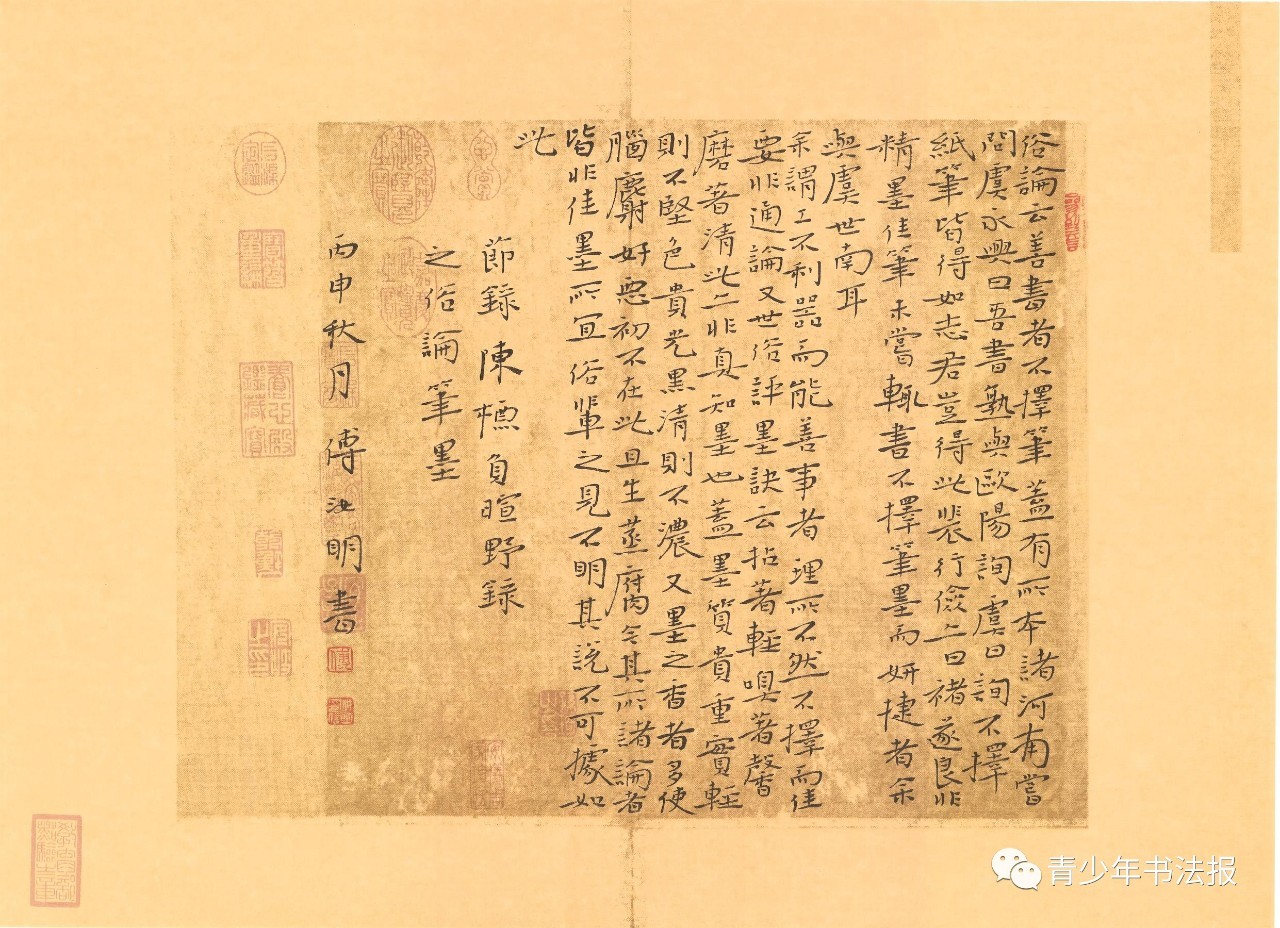 俗論云善書者不擇筆蓋有所本諸河南嘗
問虞永興曰吾書孰與歐陽詢虞曰詢不擇
紙筆皆得如志君豈得此裴行儉亦曰褚遂良非
精墨佳筆未嘗輒書不擇筆墨而妍捷者余
與虞世南耳
余謂工不利器而能善事者理所不然不擇而佳
要非通論又世俗評墨訣云拈著輕嗅著馨
磨著清此亦非真知墨也蓋墨質貴重實輕
則不堅色貴光黑清則不濃又墨之香者多使
腦麝好惡初不在此且生蒸腐令其所諸論者
皆非佳墨所宜俗輩之見不明其說不可據如
此
節錄陳槱負暄野錄
之俗論筆墨
丙申秋月傅明書
青少年书法报